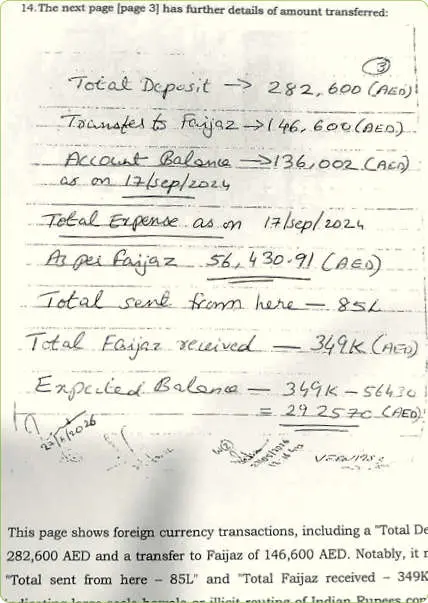 14. The next page [page 3] has further details of amount transferred:
3
Total Deposit → 282,600 (AED)
Transfer to Faijaz → 146,600 (AED)
Account Balance → 136,002 (AED)
as on 17/sep/2024
Total Expense as on 17/sep/2024
As per Faijaz 56,430.91 (AED)
Total sent from here – 85L
Total Faijaz received – 349K (AED)
Expected Balance – 349K – 56430
= 292570 (AED)
This page shows foreign currency transactions, including a "Total De
282,600 AED and a transfer to Faijaz of 146,600 AED. Notably, it
"Total sent from here – 85L" and "Total Faijaz received – 349K